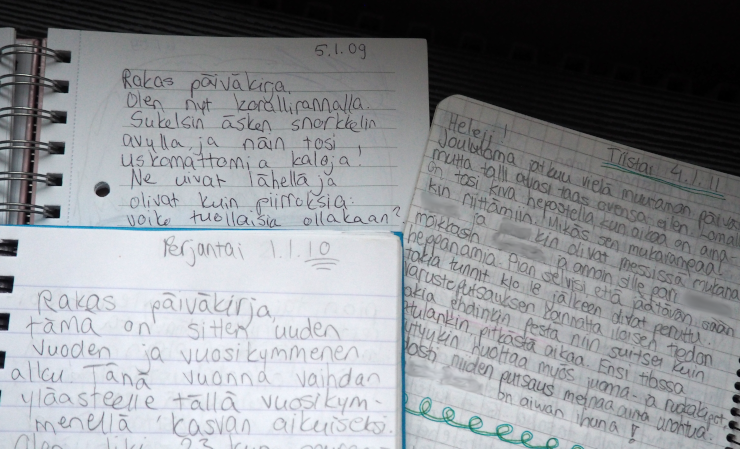 5.1.09
Rakas päiväkirja,
Olen nyt korallirannalla.
Sukelsin äsken snorkkelin
avulla, ja näin tosi
uskomattomia kaloja!
Ne uivat lähellä ja
olivat kuin piirroksia:
voiko tuollaisia ollakaan?
Perjantai 1.1.10
Rakas päiväkirja,
tämä on sitten uuden
vuoden ja vuosikymmenen
alku. Tänä vuonna vaihdan
yläasteelle tällä vuosikym-
menellä kasvan aikuiseksi.
Tiistai 4.1.11
Heleji!
Joululoma jatkuu vielä muutaman päivän
mutta talli avasi taas ovensa. Olen
on tosi kiva hepostella kun aikaa on aina-
kin riittämiin. Mikäs sen mukavampaa!
ja kin olivat messissä mutana
moikkasin ja annoin sille pari
heppanamia. Pian selvisi että
tokla tunnit klo 16 jälkeen olivat peruttu.
varusteputsauksen kannalta iloisen tiedon
ehdinkin pestä niin suitset kuin
pitkästä aikaa. Ensi
huoltaa myös juoma- ja ruokakipot,
niiden putsaus meinaa aina unohtua.
on aivan ihana!